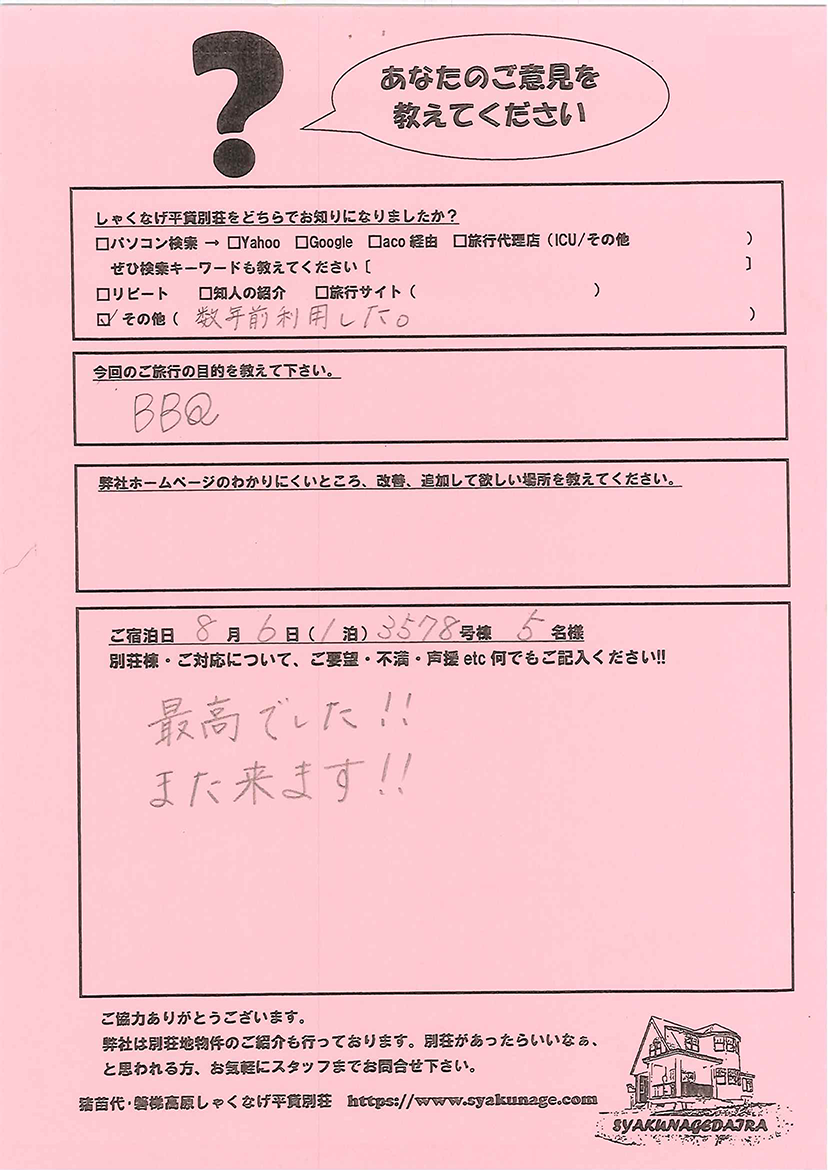 ?
あなたのご意見を
教えてください
しゃくなげ平貸別荘をどちらでお知りになりましたか？
□パソコン検索 → □Yahoo □Google □aco経由 □旅行代理店（ICU/その他 ）
ぜひ検索キーワードも教えてください［ ］
□リピート □知人の紹介 □旅行サイト（ ）
☑ その他（ 数年前利用した。 ）
今回のご旅行の目的を教えて下さい。
BBQ
弊社ホームページのわかりにくいところ、改善、追加して欲しい場所を教えてください。
ご宿泊日 8 月 6 日（1 泊）3578号棟 5 名様
別荘棟・ご対応について、ご要望・不満・声援 etc 何でもご記入ください!!
最高でした!!
また来ます!!
ご協力ありがとうございます。
弊社は別荘地物件のご紹介も行っております。別荘があったらいいなぁ、
と思われる方、お気軽にスタッフまでお問合せ下さい。
猪苗代・磐梯高原しゃくなげ平貸別荘 https://www.syakunage.com
SYAKUNAGEDAIRA